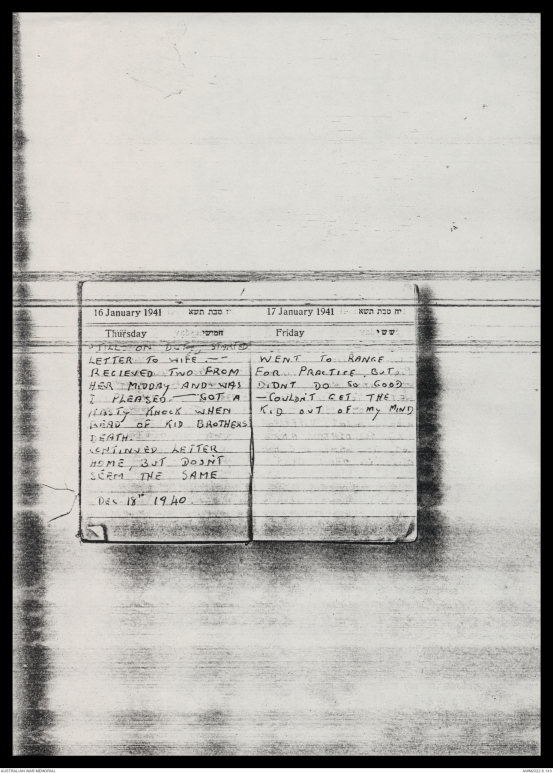 16 January 1941 יז טבת תשא
Thursday חמישי
STILL ON DUTY, STARTED
LETTER TO WIFE —
RECIEVED TWO FROM
HER MIDDAY AND WAS
I PLEASED — GOT A
NASTY KNOCK WHEN
READ OF KID BROTHERS
DEATH.
CONTINUED LETTER
HOME, BUT DOSNT
SEEM THE SAME
DEC 18TH 1940
17 January 1941 יח טבת תשא
Friday ששי
WENT TO RANGE
FOR PRACTISE BUT
DIDNT DO SO GOOD
— COULDN'T GET THE
KID OUT OF MY MIND
AUSTRALIAN WAR MEMORIAL